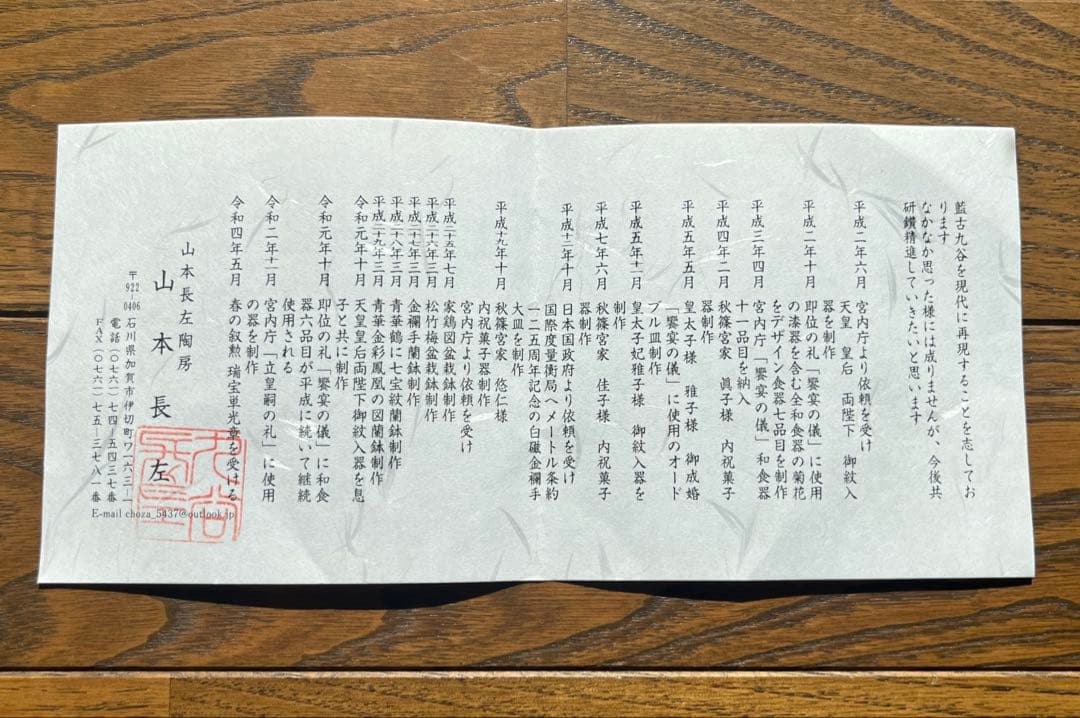 藍古九谷を現代に再現することを志してお
ります
なかなか思った様には成りませんが、今後共
研鑽精進していきたいと思います
平成二年六月 宮内庁より依頼を受け
天皇 皇后 両陛下 御紋入
器を制作
平成二年十月 即位の礼「饗宴の儀」に使用
の漆器を含む全和食器の菊花
をデザイン食器七品目を制作
平成三年四月 宮内庁「饗宴の儀」和食器
十一品目を納入
平成四年二月 秋篠宮家 眞子様 内祝菓子
器制作
平成五年五月 皇太子様 雅子様 御成婚
「饗宴の儀」に使用のオード
ブル皿制作
平成五年十一月 皇太子妃雅子様 御紋入器を
制作
平成七年六月 秋篠宮家 佳子様 内祝菓子
器制作
平成十二年十月 日本国政府より依頼を受け
国際度量衡局へメートル条約
一二五周年記念の白磁金襴手
大皿を制作
平成十九年十月 秋篠宮家 悠仁様
内祝菓子器制作
宮内庁より依頼を受け
平成二十五年七月 家鶏図盆栽鉢制作
平成二十六年三月 松竹梅盆栽鉢制作
平成二十七年三月 金襴手蘭鉢制作
平成二十八年三月 青華鶴に七宝紋蘭鉢制作
平成二十九年三月 青華金彩鳳凰の図蘭鉢制作
令和元年十月 天皇皇后両陛下御紋入器を息
子と共に制作
令和元年十月 即位の礼「饗宴の儀」に和食
器六品目が平成に続いて継続
使用される
令和二年十一月 宮内庁「立皇嗣の礼」に使用
の器を制作
令和四年五月 春の叙勲 瑞宝単光章を受ける
山本長左陶房
山本長左
〒922-0406 石川県加賀市伊切町ワ一六三ー一
電話(〇七六一)七四ー五四三七番
FAX(〇七六一)七五ー三七八一番
E-mail choza_5437@outlook.jp